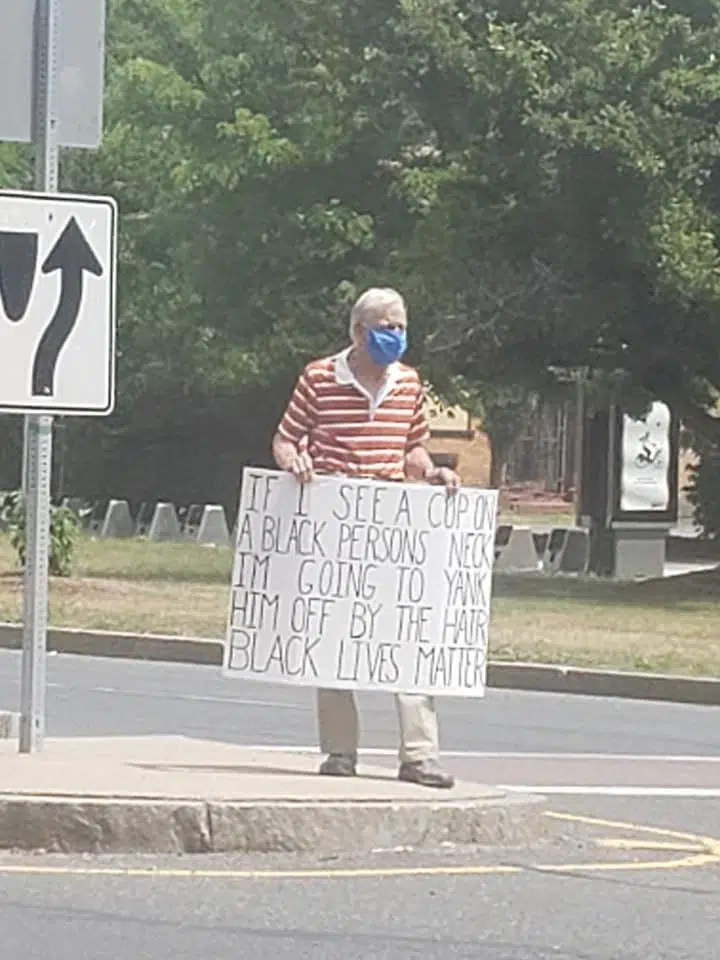 IF I SEE A COP ON
A BLACK PERSONS NECK
IM GOING TO YANK
HIM OFF BY THE HAIR
BLACK LIVES MATTER